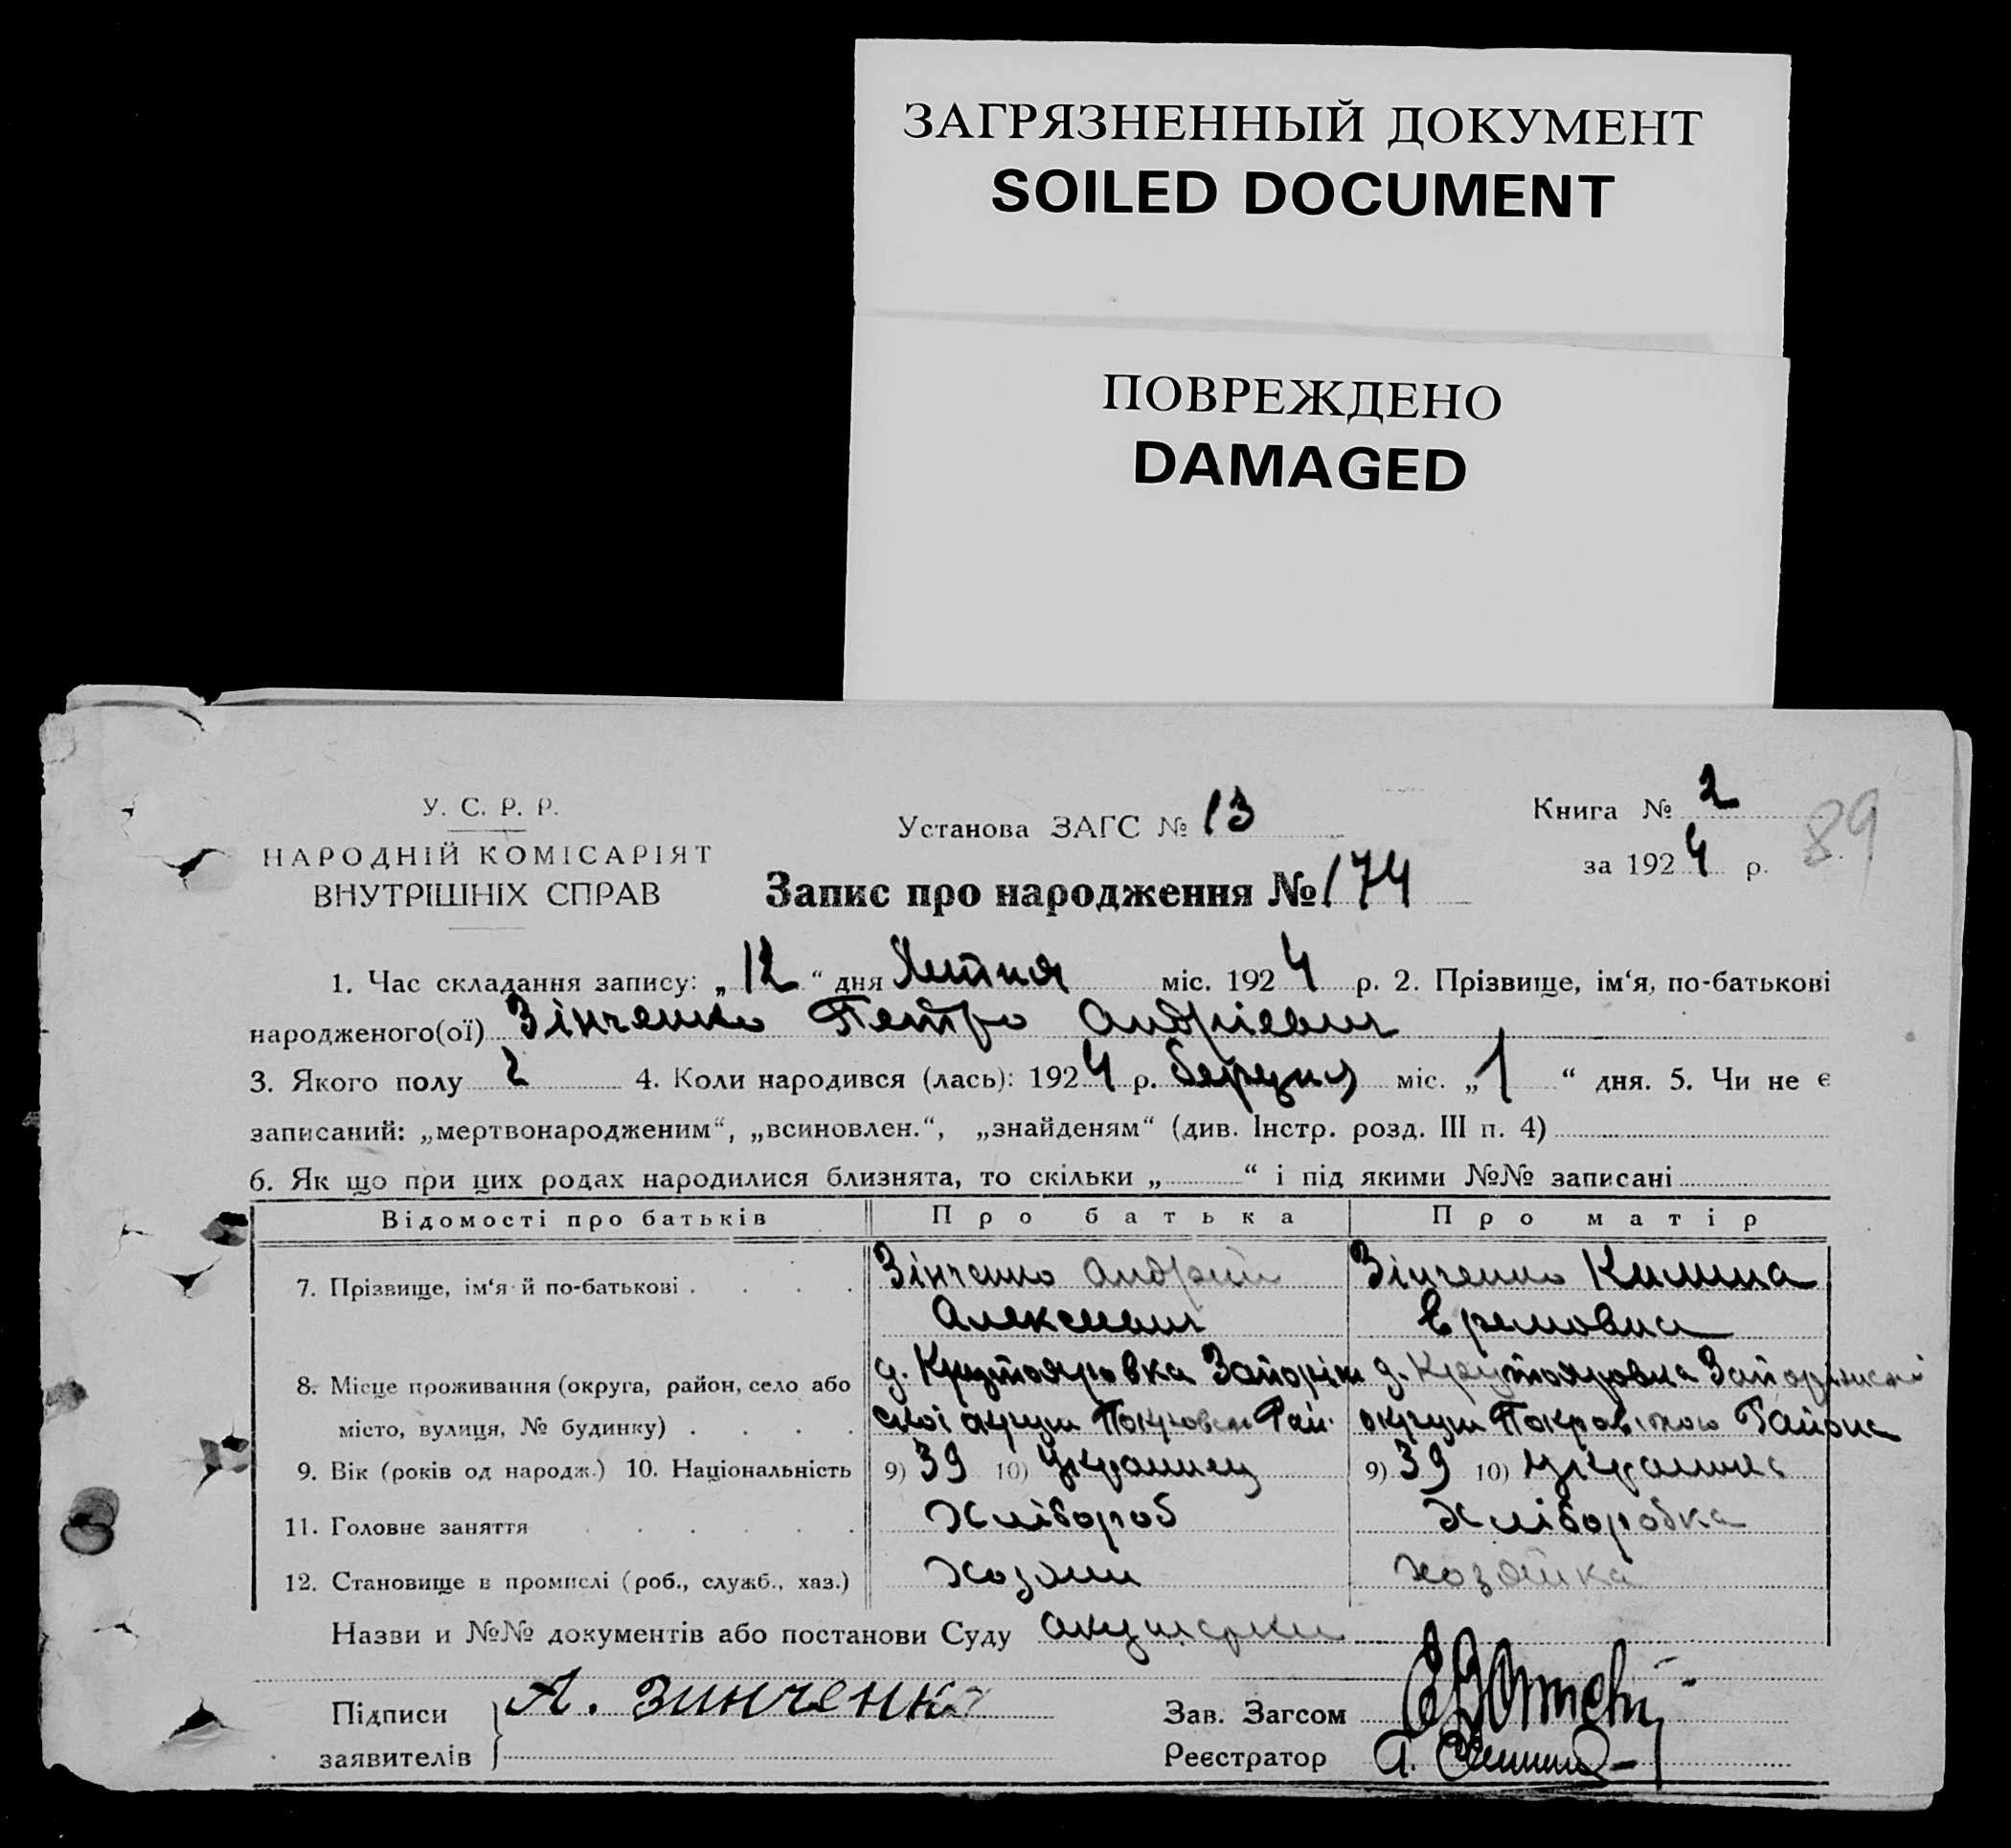 ЗАГРЯЗНЕННЫЙ ДОКУМЕНТ
SOILED DOCUMENT
ПОВРЕЖДЕНО
DAMAGED
У. С. Р. Р.
НАРОДНІЙ КОМІСАРІЯТ
ВНУТРІШНІХ СПРАВ
Установа ЗАГС № 13
Книга № 2
за 1924 р.
89
Запис про народження № 174
1. Час складання запису: „12“ дня міс. 1924 р. 2. Прізвище, ім‘я, по-батькові
народженого(ої) Зінченко Петро Андрієвич
3. Якого полу 4. Коли народився (лась): 1924 р. березня міс. „1“ дня. 5. Чи не є
записаний: „мертвонародженим“, „всиновлен.“, „знайденям“ (див. Інстр. розд. III п. 4)
6. Як що при цих родах народилися близнята, то скільки „ “ і під якими №№ записані
Відомості про батьків Про батька Про матір
7. Прізвище, ім‘я й по-батькові Зінченко Андрій Зінченко Килина
Алексеевич Еремовна
8. Місце проживання (округа, район, село або д. Крутояровка Запоріж д. Крутояровка Запоріжскоі
місто, вулиця, № будинку) скоі округи Покровск Рай. округи Покровского Района
9. Вік (років од народж.) 10. Національність 9) 39 10) Украинец 9) 39 10)
11. Головне заняття Хлібороб Хлiборобка
12. Становище в промислі (роб., служб., хаз.) хозяин хозяйка
Назви и №№ документів або постанови Суду акушерки
Підписи А. Зинченко Зав. Загсом
заявителів Реєстратор